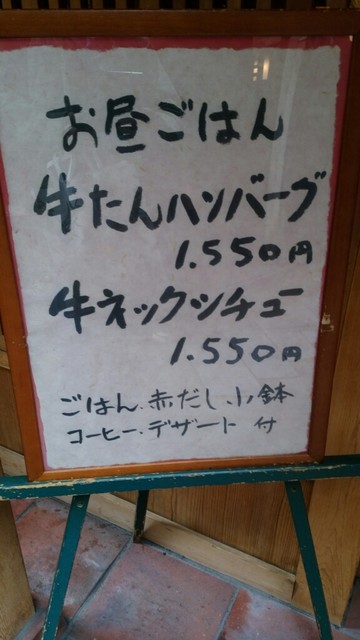 お昼ごはん
牛たんハンバーグ
1.550円
牛ネックシチュー
1.550円
ごはん.赤だし.小鉢
コーヒー.デザート 付